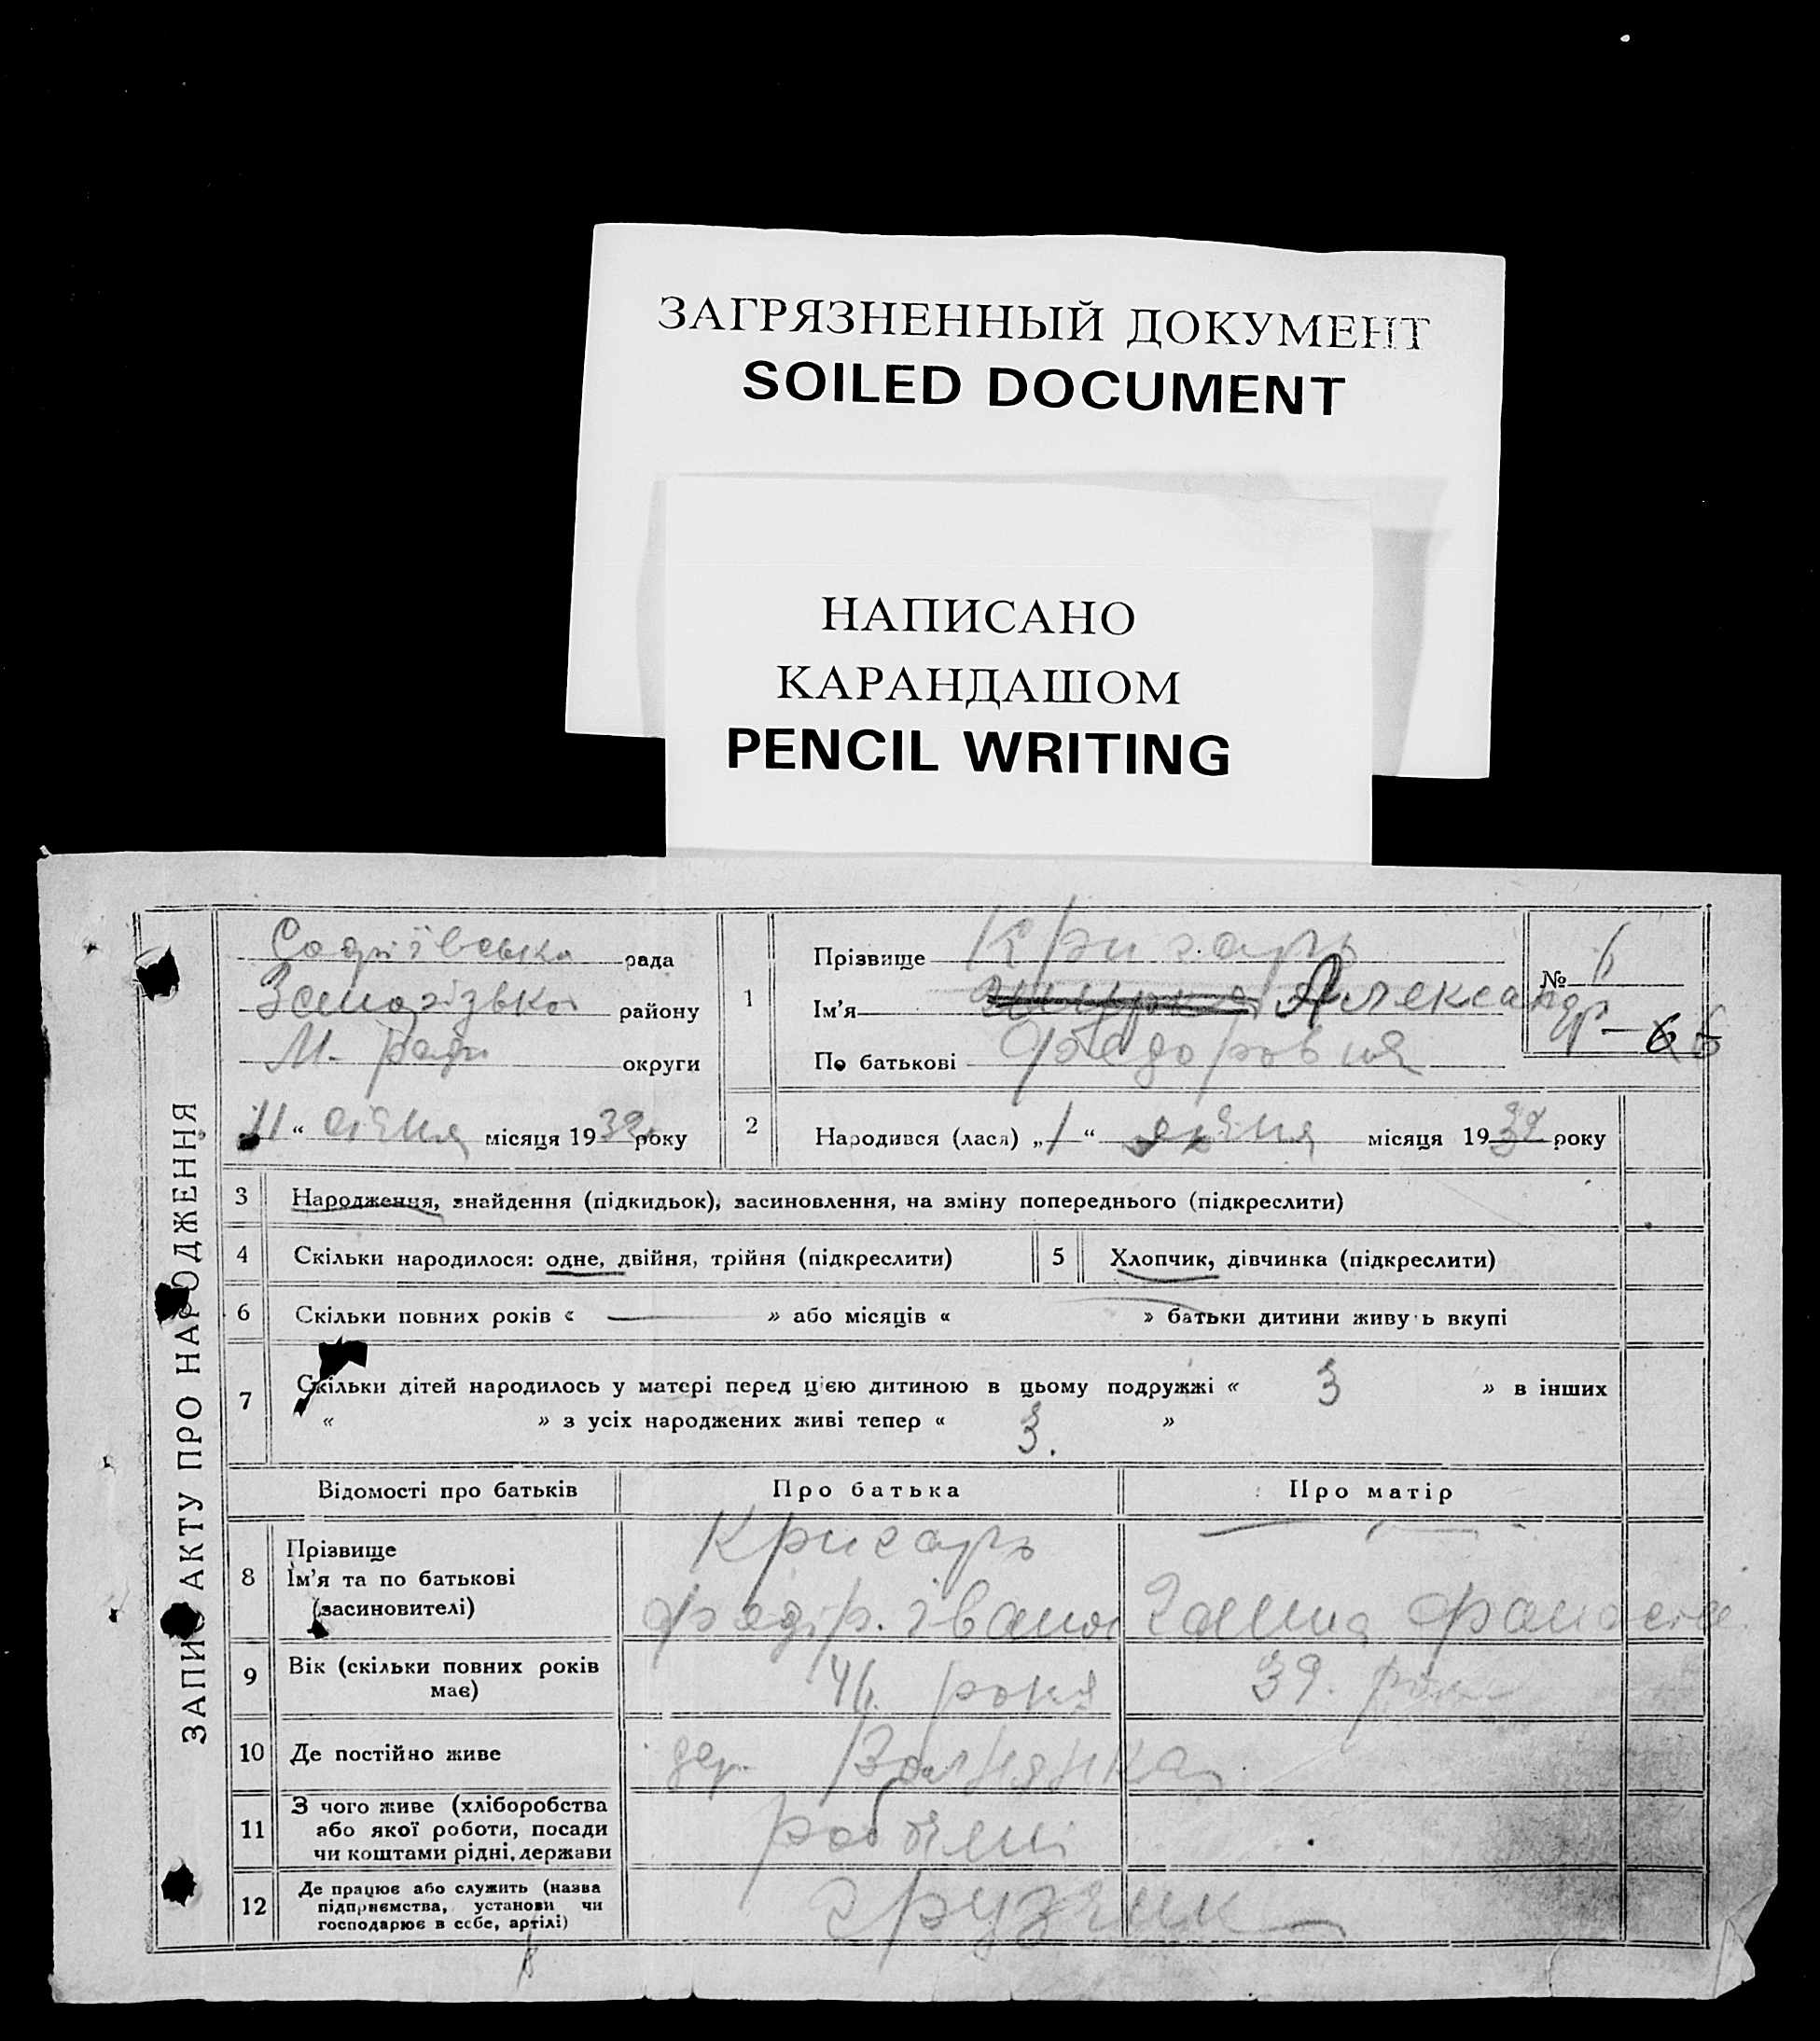 ЗАГРЯЗНЕННЫЙ ДОКУМЕНТ
SOILED DOCUMENT
НАПИСАНО
КАРАНДАШОМ
PENCIL WRITING
ЗАПИС АКТУ ПРО НАРОДЖЕННЯ
рада
району
М. ради округи
11 “ січня місяця 1939 року
1
Прізвище Крисарь
Ім'я Александр
По батькові Федоровия
№ 6
2
Народився (лася) „1“ січня місяця 1939 року
3 Народження, знайдення (підкидьок), засиновлення, на зміну попереднього (підкреслити)
4 Скільки народилося: одне, двійня, трійня (підкреслити)
5 Хлопчик, дівчинка (підкреслити)
6 Скільки повних років « — » або місяців « » батьки дитини живуть вкупі
7 Скільки дітей народилось у матері перед цією дитиною в цьому подружжі « 3 » в інших
« » з усіх народжених живі тепер « 3. »
Відомості про батьків Про батька Про матір
8 Прізвище Крисарь —
Ім'я та по батькові
(засиновителі) Федір. Іванов Ганна
9 Вік (скільки повних років має) 41. рокя 39. рок
10 Де постійно живе дер.
11 З чого живе (хліборобства
або якої роботи, посади
чи коштами рідні, держави робочий
12 Де працює або служить (назва
підприємства, установи чи
господарює в себе, артілі) грузчик